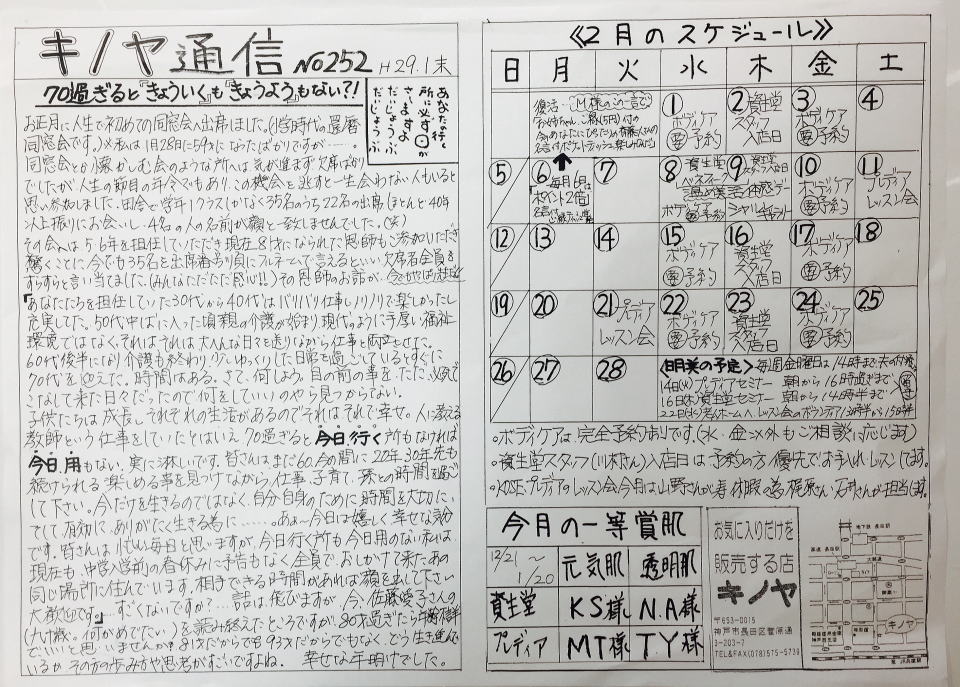 キノヤ通信 No252 H29.1末
70過ぎると『きょういく』も『きょうよう』もない?!
あなたの行く
所に必ず〇が
さいますよ
だいじょうぶ
だいじょうぶ
お正月に人生で初めての同窓会へ出席しました。(小学時代の還暦
同窓会です。)〆私は1月28日に59才になったばかりですが……。
同窓会とか懐かしむ会のような所へは気が進まず欠席ばかり
でしたが人生の節目の年令でもあり、この機会を逃すと一生会わない人もいると
思い参加しました。田舎で学年1クラスしかなく35名のうち22名の出席(ほとんど40年
以上振りにお会いし4名の人の名前が顔と一致しませんでした。(笑)
その会へは5、6年を担任していただき現在、8才になられた恩師もご参加いただき
驚くことに今でも35名と出席番号順にフルネームで言えるといい欠席者全員を
すらすらと言い当てました。(みんなただただ感心!!)その恩師のお話が、
『あなたたちを担任していた30代から40代はバリバリ仕事しノリノリで楽しかったし
充実してた。50代中ばに入った頃親の介護が始まり、現代のように手厚い福祉
環境ではなく、それはそれは大変な日々を送りながら仕事と両立させた。
60代後半になり介護も終わり、少しゆっくりした日常を過ごしているとすぐに
70代を迎えた。時間はある。さて、何しよう。目の前の事をただ、必死で
こなして来た日々だったので何をしていいのやら見つからない。
子供たちは成長しそれぞれの生活があるのでそれはそれで幸せ。人に教える
教師という仕事をしていたとはいえ70過ぎると今日行く所もなければ
今日用もない。実に淋しいです。皆さんはまだ60。今の間に20年、30年先も
続けられる楽しめる事を見つけながら仕事、子育て、孫との時間を過ご
して下さい。今だけを生きるのではなく自分自身のために時間を大切に、
そして有効に、ありがたく生きる為に……。あぁ〜今日は嬉しく幸せな気分
です。皆さんは忙しい毎日と思いますが、今日行く所も今日用のない私は、
現在も中学入学前の春休みに予告もなく全員でおしかけて来たあの
同じ場所に住んでいます。相手できる時間があれば顔を出して下さい
大歓迎です。』すごくないですか?…話は飛びますが、今、佐藤愛子さんの
(九十歳。何がめでたい)を読み終えたところですが、80才過ぎたら
でいいと思いませんか?8才だからでも93才だからでもなく、どう生き進んで
いるか、その方の歩み方や思考がすごいですよね。 幸せな年明けでした。
《2月のスケジュール》
日 月 火 水 木 金 土
① ボディケア 要予約
② 資生堂 スタッフ 入店日
③ ボディケア 要予約
④
⑤
⑥ 毎月6日は ポイント2倍
⑦
⑧ 資生堂
ボディケア 要予約
⑨ 資生堂
⑩ ボディケア 要予約
⑪ プレディア レッスン会
⑫
⑬
⑭
⑮ ボディケア 要予約
⑯ 資生堂 スタッフ 入店日
⑰ ボディケア 要予約
⑱
⑲
⑳
㉑ プレディア レッスン会
㉒ ボディケア 要予約
㉓ 資生堂 スタッフ 入店日
㉔ ボディケア 要予約
㉕
㉖
㉗
㉘
《明美の予定》毎週金曜日は14時まで
14日(火)プレディアセミナー 朝から16時過ぎまで
16日(木)資生堂セミナー 朝から14時半まで
22日(水)老人ホームへ、レッスン会のボランティア13時半から15時半
。ボディケアは完全予約ありです。(水・金以外もご相談に応じます)
。資生堂スタッフ(川村さん)入店日は予約の方優先でお手入れレッスンしてます。
。KOSE.プレディアのレッスン会、今月は山野さんが春休暇の為、梶原さん・石井さんが担当します。
今月の一等賞肌
12/21〜1/20 元気肌 透明肌
資生堂 KS様 N.A様
プレディア MT様 TY様
お気に入りだけを
販売する店
キノヤ
〒653-0015
神戸市長田区菅原通
3-203-7
TEL&FAX(078)575-5739
キノヤ